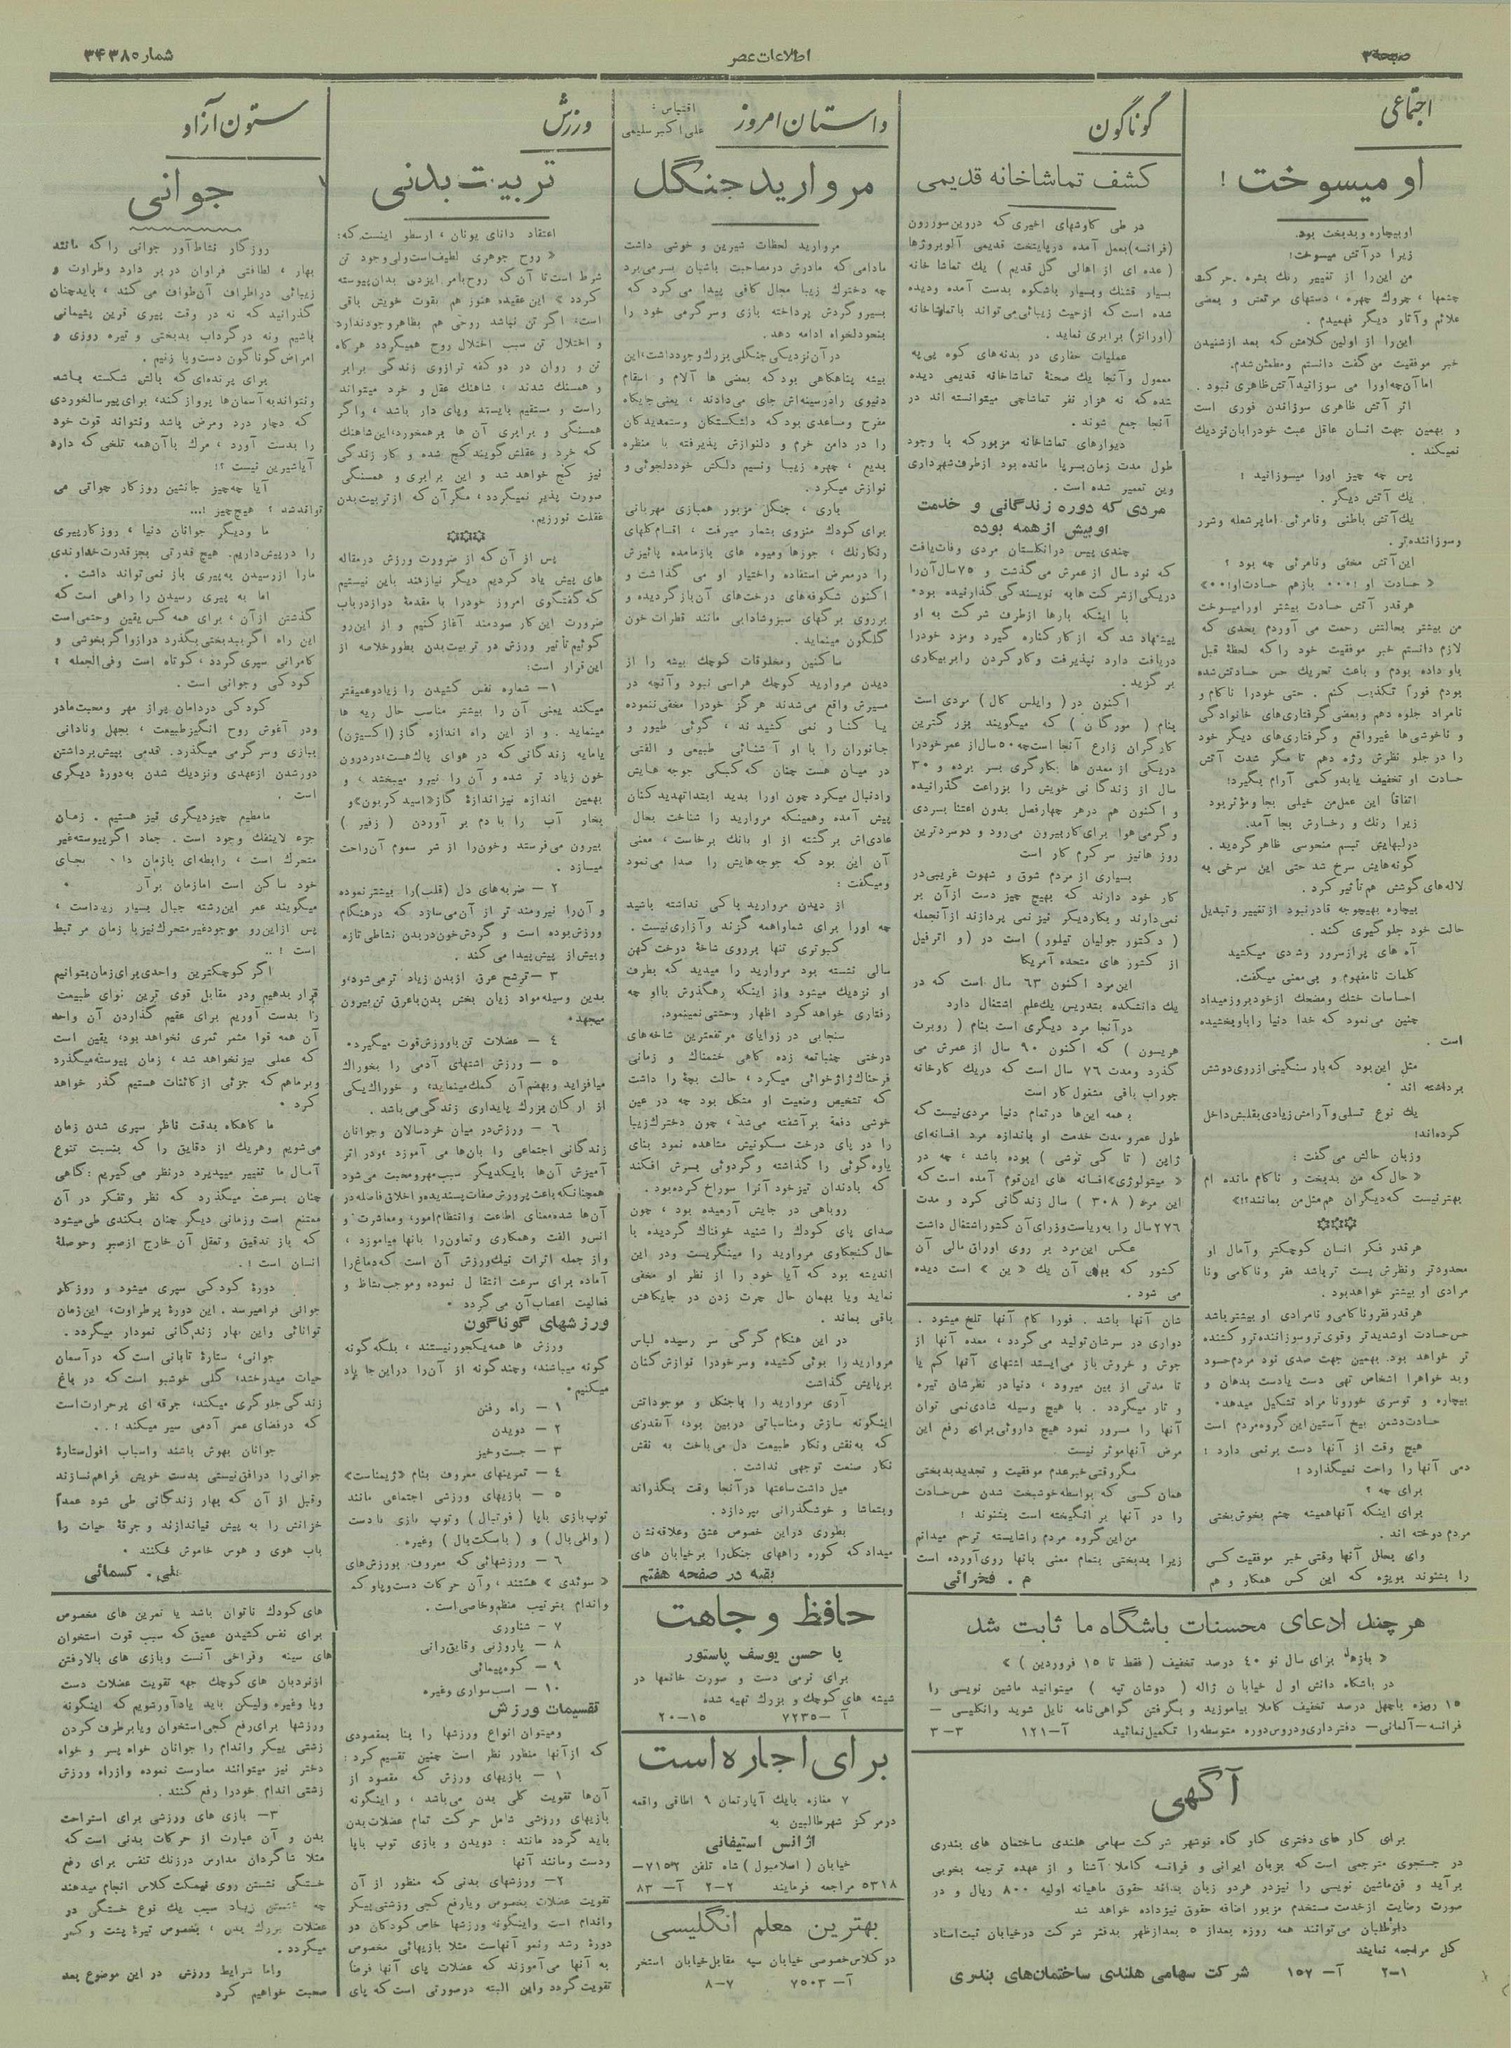 صفحه ۳
اطلاعات عصر
شماره ۳۴۳۸۵
اجتماعی
او میسوخت !
او بیچاره و بدبخت بود.
زیرا در آتش میسوخت!
من این را از تغییر رنك بشره . حرکت
چشمها ، چروك چهره ، دستهای مرتعش و بعضی
علائم و آثار دیگر فهمیدم .
این را از اولین کلامش که بعد از شنیدن
خبر موفقیت من گفت دانستم و مطمئن شدم.
اما آن چه او را می سوزانید آتش ظاهری نبود .
اثر آتش ظاهری سوزاندن فوری است
و بهمین جهت انسان عاقل عبث خود را بان نزدیك
نمیکند .
پس چه چیز او را میسوزانید !
یك آتش دیگر .
یك آتش باطنی و نامرئی اما پر شعله و شرر
و سوزاننده تر .
این آتش مخفی و نامرئی چه بود ؟
« حسادت او !۰۰۰ بازهم حسادت او!۰۰»
هر قدر آتش حسادت بیشتر او را میسوخت
من بیشتر بحالش رحمت می آوردم بحدی که
لازم دانستم خبر موفقیت خود را که لحظۀ قبل
باو داده بودم و باعث تحریك حس حسادتش شده
بودم فوراً تکذیب کنم . حتی خود را ناکام و
نامراد جلوه دهم و بعضی گرفتاری های خانوادگی
و ناخوشی ها غیر واقع و گرفتاری های دیگر خود
را در جلو نظرش رژه دهم تا مگر شدت آتش
حسادت او تخفیف یابد و کمی آرام بگیرد!
اتفاقاً این عمل من خیلی بجا و مؤثر بود
زیرا رنك و رخسارش بجا آمد.
در لبهایش تبسم منحوسی ظاهر گردید .
گونه هایش سرخ شد حتی این سرخی به
لاله های گوشش هم تأثیر کرد .
بیچاره بهیچوجه قادر نبود از تغییر و تبدیل
حالت خود جلوگیری کند .
آه های پر از سرور و شدی میکشید
کلمات نامفهوم و بی معنی میگفت.
احساسات خنك و مضحك از خود بروز میداد
چنین می نمود که خدا دنیا را باو بخشیده
است .
مثل این بود که بار سنگینی از روی دوشش
برداشته اند .
یك نوع تسلی و آرامش زیادی بقلبش داخل
کرده اند!
و زبان حالش می گفت :
« حال که من بدبخت و ناکام مانده ام
بهتر نیست که دیگران هم مثل من بمانند؟!»
هر قدر فکر انسان کوچکتر و آمال او
محدودتر و نظرش پست تر باشد فقر و ناکامی و نا
مرادی او بیشتر خواهد بود .
هر قدر فقر و ناکامی و نامرادی او بیشتر باشد
حس حسادت او شدیدتر و قوی تر و سوزاننده تر و کشنده
تر خواهد بود. بهمین جهت صدی نود مردم حسود
و بد خواه را اشخاص تهی دست یا دست بدهان و
بیچاره و توسری خور و نامراد تشکیل میدهد.
حسادت دشمن بیخ آستین این گروه مردم است
هیچ وقت از آنها دست برنمی دارد !
دمی آنها را راحت نمیگذارد !
برای چه ؟
برای اینکه آنها همیشه چشم بخوش بختی
مردم دوخته اند .
وای بحال آنها وقتی خبر موفقیت کسی
را بشنوند بویژه که این کس همکار و هم
گوناگون
کشف تماشاخانه قدیمی
در طی کاوشهای اخیری که در وین سور رون
(فرانسه) بعمل آمده در پایتخت قدیمی آلوبروژها
( عده ای از اهالی گل قدیم ) یك تماشا خانه
بسیار قشنك و بسیار باشکوه بدست آمده و دیده
شده است که از حیث زیبائی می تواند با تماشاخانه
(اورانژ) برابری نماید .
عملیات حفاری در بدنه های کوه پی په
معمول و آنجا یك صحنۀ تماشاخانه قدیمی دیده
شده که نه هزار نفر تماشاچی میتوانسته اند در
آنجا جمع شوند .
دیوارهای تماشاخانه مزبور که با وجود
طول مدت زمان بسرپا مانده بود از طرف شهرداری
وین تعمیر شده است .
مردی که دوره زندگانی و خدمت
او بیش از همه بوده
چندی پیس در انگلستان مردی وفات یافت
که نود سال از عمرش می گذشت و ۷۵ سال آن را
در یکی از شرکت ها به نویسندگی گذارنیده بود.
با اینکه بارها از طرف شرکت به او
پیشنهاد شد که از کار کناره گیرد و مزد خود را
دریافت دارد نپذیرفت و کار کردن را بر بیکاری
بر گزید .
اکنون در ( وایلس کال ) مردی است
بنام ( مورگان ) که میگویند بزر گترین
کارگران زارع آنجا است چه ۵۰ سال از عمر خود را
در یکی از معدن ها بکارگری بسر برده و ۳۰
سال از زندگا نی خویش را بزراعت گذرانیده
و اکنون هم در هر چهار فصل بدون اعتنا بسردی
و گرمی هوا برای کار بیرون می رود و دو سرد ترین
روز ها نیز سر گرم کار است
بسیاری از مردم شوق و شهوت غریبی در
کار خود دارند که بهیچ چیز دست از آن بر
نمی دارند و بکار دیگر نیز نمی پردازند از آنجمله
( دکتور جولیان تیلور) است در ( و اترفیل
از کشور های متحده آمریکا
این مرد اکنون ۶۳ سال است که در
یك دانشکده بتدریس یك علم اشتغال دارد
در آنجا مرد دیگری است بنام ( روبرت
هریسون ) که اکنون ۹۰ سال از عمرش می
گذرد و مدت ۷۶ سال است که در یك کارخانه
جوراب بافی مشغول کار است
با همه این ها در تمام دنیا مردی نیست که
طول عمر و مدت خدمت او باندازه مرد افسانه ای
ژاپن ( تا کی نوشی ) بوده باشد ، چه در
« میتولوژی» افسانه های این قوم آمده است که
این مرد ( ۳۰۸ ) سال زندگانی کرد و مدت
۲۷۶ سال را به ریاست وزرای آن کشور اشتغال داشت
عکس این مرد بر روی اوراق مالی آن
کشور که بهای آن یك « ین » است دیده
می شود .
شان آنها باشد . فورا کام آنها تلخ میشود .
دواری در سرشان تولید می گردد ، معده آنها از
جوش و خروش باز می ایستد اشتهای آنها کم یا
تا مدتی از بین میرود ، دنیا در نظرشان تیره
و تار میگردد . با هیچ وسیله شادی نمی توان
آنها را مسرور نمود هیچ داروئی برای رفع این
مرض آنها موثر نیست .
مگر وقتی خبر عدم موفقیت و تجدید بدبختی
همان کسی که بواسطه خوشبخت شدن حس حسادت
را در آنها بر انگیخته است بشنوند !
من این گروه مردم را شایسته ترحم میدانم
زیرا بدبختی بتمام معنی بانها روی آورده است
م . فخرائی
داستان امروز
اقتباس :
علی اکبر سلیمی
مروارید جنگل
مروارید لحظات شیرین و خوشی داشت
مادامی که مادرش در مصاحبت باشبان بسر می برد
چه دخترك زیبا مجال کافی پیدا می کرد که
بسیر و گردش پرداخته بازی و سر گرمی خود را
بنحو دلخواه ادامه دهد.
در آن نزدیکی جنگلی بزرك وجود داشت، این
بیشه پناهگاهی بود که بعضی ها آلام و اسقام
دنیوی را در سینه اش جای می دادند ، یعنی جایگاه
مفرح و مساعدی بود که دلشکستگان و ستمدیدگان
را در دامن خرم و دلنوازش پذیرفته با منظره
بدیع ، چهره زیبا و نسیم دلکش خود دلجوئی و
نوازش میکرد .
باری ، جنگل مزبور همبازی مهربانی
برای کودك منزوی بشمار میرفت ، اقسام گلهای
رنگارنك ، جوزها و میوه های باز مانده پائیزش
را در معرض استفاده و اختیار او می گذاشت و
اکنون شکوفه های درخت های آن باز گردیده و
بر روی برگهای سبز و شادابی مانند قطرات خون
گلگون مینماید .
ساکنین و مخلوقات کوچك بیشه را از
دیدن مروارید کوچك هراسی نبود و آنچه در
مسیرش واقع می شدند هرگز خود را مخفی ننموده
یا کنار نمی کشیدند ، گوئی طیور و
جانوران را با او آشنائی طبیعی و الفتی
در میان هست چنان که کبکی جوجه هایش
را دنبال میکرد چون او را بدید ابتدا تهدید کنان
پیش آمده و همینکه مروارید را شناخت بحال
عادی اش برگشته از او بانك برخاست ، معنی
آن این بود که جوجه هایش را صدا می نمود
و میگفت :
از دیدن مروارید باکی نداشته باشید
چه او را برای شما واهمه گزند و آزاری نیست .
کبوتری تنها بر روی شاخۀ درخت کهن
سالی نشسته بود مروارید را میدید که بطرف
او نزدیك میشود و از اینکه رهگذرش با او چه
رفتاری خواهد کرد اظهار وحشتی نمینمود.
سنجابی در زوایای مرتفعترین شاخه های
درختی چنباتمه زده گاهی خشمناك و زمانی
فرحناك ژاژخوائی میکرد ، حالت بچۀ را داشت
که تشخیص وضعیت او مشکل بود چه در عین
خوشی دفعة بر آشفته می شد، چون دخترك زیبا
را در پای درخت مسکونیش مشاهده نمود بنای
یاوه گوئی را گذاشته و گردوئی بسرش افکند
که بادندان تیز خود آنرا سوراخ کرده بود .
روباهی در جایش آرمیده بود ، چون
صدای پای کودك را شنید خوفناك گردیده با
حال کنجکاوی مروارید را مینگریست و در این
اندیشه بود که آیا خود را از نظر او مخفی
نماید ویا بهمان حال چرت زدن در جایگاهش
باقی بماند .
در این هنگام گرگی سر رسیده لباس
مروارید را بوئی کشیده و سر خود را نوازش کنان
بر پایش گذاشت
آری مروارید را با جنگل و موجوداتش
اینگونه سازش و مناسباتی در بین بود، آنقدری
که به نقش و نگار طبیعت دل می باخت به نقش
نگار صنعت توجهی نداشت .
میل داشت ساعتها در آنجا وقت بگذراند
و بتماشا و خوشگذرانی بپردازد .
بطوری در این خصوص عشق و علاقه نشان
میداد که کوره راههای جنگل را بر خیابان های
بقیه در صفحه هفتم
ورزش
تربیت بدنی
اعتقاد دانای یونان ، ارسطو اینست که:
« روح جوهری لطیف است ولی وجود تن
شرط است تا آن که روح بامر ایزدی بدان پیوسته
گردد » این عقیده هنوز هم بقوت خویش باقی
است: اگر تن نباشد روحی هم بظاهر وجود ندارد
و اختلال تن سبب اختلال روح همیگردد هر گاه
تن و روان در دو کفه ترازوی زندگی برابر
و همسنك شدند ، شاهنك عقل و خرد میتواند
راست و مستقیم بایستد و پای دار باشد ، و اگر
همسنگی و برابری آن ها بر همخورد، این شاهنك
که خرد و عقلش گویند کج شده و کار زندگی
نیز کج خواهد شد و این برابری و همسنگی
صورت پذیر نمیگردد ، مگر آن که از تربیت بدن
غفلت نورزیم.
پس از آن که از ضرورت ورزش در مقاله
های پیش یاد کردیم دیگر نیازمند باین نیستیم
که گفتگوی امروز خود را با مقدمۀ دراز در باب
ضرورت این کار سودمند آغاز کنیم و از این رو
گوئیم تأثیر ورزش در تربیت بدن بطور خلاصه از
این قرار است:
۱– شماره نفس کشیدن را زیاد و عمیقتر
میکند یعنی آن را بیشتر مناسب حال ریه ها
مینماید . و از این راه اندازه گاز (اکسیژن)
یا مایه زندگانی که در هوای پاك هست، در درون
خون زیاد تر شده و آن را نیرو میبخشد ، و
بهمین اندازه نیز اندازۀ گاز «اسید کربون» و
بخار آب را با دم بر آوردن ( زفیر )
بیرون می فرستد و خون را از شر سموم آن راحت
میسازد .
۲ – ضربه های دل (قلب) را بیشتر نموده
و آن را نیرومند تر از آن می سازد که در هنگام
ورزش بوده است و گردش خون در بدن نشاطی تازه
و بیش از پیش پیدا می کند .
۳ – ترشح عرق از بدن زیاد تر می شود و
بدین وسیله مواد زیان بخش بدن با عرق تن بیرون
میجهد.
٤ – عضلات تن با ورزش قوت میگیرد.
۵ – ورزش اشتهای آدمی را بخوراك
میافزاید و بهضم آن کمك مینماید، و خوراك یکی
از ارکان بزرك پایداری زندگی می باشد .
۶ – ورزش در میان خردسالان و جوانان
زندگانی اجتماعی را بان ها می آموزد ، و در اثر
آمیزش آن ها با یکدیگر سبب مهر و محبت می شود
همچنانکه باعث پرورش صفات پسندیده و اخلاق فاضله در
آن ها شده معنای اطاعت و انتظام امور، و معاشرت و
انس و الفت و همکاری و تعاون را بانها میاموزد ،
و از جمله اثرات نیك ورزش آن است که دماغ را
آماده برای سرعت انتقال نموده و موجب نشاط و
فعالیت اعصاب آن می گردد .
ورزشهای گوناگون
ورزش ها همه یکجور نیستند ، بلکه گونه
گونه میباشند، و چند گونه از آن را در این جا یاد
میکنیم .
۱ – راه رفتن
۲ – دویدن
۳ – جست و خیز
٤ – تمرینهای معروف بنام «ژیمناست»
۵ – بازیهای ورزشی اجتماعی مانند
توپ بازی باپا ( فوتبال ) و توپ بازی با دست
( والی بال ) و ( باسکت بال ) وغیره .
۶ – ورزشهائی که معروف بورزش های
« سوئدی » هستند ، و آن حرکات دست و پا و که
و اندام بترتیب منظم و خاصی است .
۷ – شناوری
۸ – پاروزنی و قایق رانی
۹ – کوه پیمائی
۱۰ – اسب سواری وغیره
تقسیمات ورزش
و میتوان انواع ورزشها را بنا بمقصودی
که از آنها منظور نظر است چنین تقسیم کرد :
۱ – بازیهای ورزش که مقصود از
آن ها تقویت کلی بدن می باشد ، و اینگونه
بازیهای ورزشی شامل حرکت تمام عضلات بدن
باید گردد مانند : دویدن و بازی توپ باپا
و دست و مانند آنها
۲– ورزشهای بدنی که منظور از آن
تقویت عضلات بخصوص و یا رفع کجی و زشتی پیکر
و اندام است و اینگونه ورزشها خاص کودکان در
دورۀ رشد و نمو آنهاست مثلا بازیهائی مخصوص
به آنها می آموزند که عضلات پای آنها فرضاً
تقویت گردد و این البته در صورتی است که پای
ستون آزاد
جوانی
روزگار نشاط آور جوانی را که مانند
بهار ، لطافتی فراوان در بر دارد و طراوت و
زیبائی در اطراف آن طواف می کند ، باید چنان
گذرانید که نه در وقت پیری قرین پشیمانی
باشیم و نه در گرداب بدبختی و تیره روزی و
امراض گوناگون دست و پا زنیم .
برای پرنده ای که بالش شکسته باشد
و نتواند به آسمان ها پرواز کند، برای پیر سالخوردی
که دچار درد و مرض باشد و نتواند قوت خود
را بدست آورد ، مرك با آن همه تلخی که دارد
آیا شیرین نیست ؟!
آیا چه چیز جانشین روزگار جوانی می
تواند شد ؟ هیچ چیز !...
ما و دیگر جوانان دنیا ، روزگار پیری
را در پیش داریم. هیچ قدرتی بجز قدرت خداوندی
ما را از رسیدن به پیری باز نمی تواند داشت .
اما به پیری رسیدن را راهی است که
گذشتن از آن ، برای همه کس یقین و حتمی است
این راه اگر ببدبختی بگذرد دراز و اگر بخوشی و
کامرانی سپری گردد ، کوتاه است وفی الجمله :
کودکی و جوانی است .
کودکی در دامان پر از مهر و محبت مادر
و در آغوش روح انگیز طبیعت ، بجهل و نادانی
ببازی و سرگرمی میگذرد. قدمی بپیش برداشتن
دور شدن از عهدی و نزدیك شدن به دورۀ دیگری
است .
ما مطیع چیز دیگری نیز هستیم . زمان
جزء لاینفك وجود است . جماد اگر پیوسته غیر
متحرك است ، رابطه ای بازمان دا بجای
خود ساکن است اما زمان بر آن
میگویند عمر این رشته جبال بسیار زیاد است ،
پس از این رو موجود غیر متحرك نیز با زمان مر تبط
است ! ..
اگر کوچکترین واحدی برای زمان بتوانیم
قرار بدهیم و در مقابل قوی ترین نوای طبیعت
را بدست آوریم برای عقیم گذاردن آن واحد
آن همه قوا مثمر ثمری نخواهد بود، یقین است
که عملی نیز نخواهد شد ، زمان پیوسته میگذرد
و بر ما هم که جزئی از کائنات هستیم گذر خواهد
کرد .
ما گاهگاه بدقت ناظر سپری شدن زمان
می شویم و هر یك از دقایق را که بنسبت تنوع
آمال ما تغییر میپذیرد در نظر می گیریم : گاهی
چنان بسرعت میگذرد که نظر و تفکر در آن
ممتنع است و زمانی دیگر چنان بکندی طی میشود
که باز تدقیق و تعقل آن خارج از صبر و حوصلۀ
انسان است !..
دورۀ کودکی سپری میشود و روزگار
جوانی فرا میرسد . این دورۀ پر طراوت، این زمان
توانائی و این بهار زندگانی نمودار میگردد .
جوانی، ستارۀ تابانی است که در آسمان
حیات میدرخشد، گلی خوشبو است که در باغ
زندگی جلوگری میکند، جرقه ای پر حرارت است
که در فضای عمر آدمی سیر میکند ! .
جوانان بهوش باشند و اسباب افول ستارۀ
جوانی را در افق نیستی بدست خویش فراهم نسازند
وقبل از آن که بهار زندگانی طی شود عمداً
خزانش را به پیش نیاندازند و جرقۀ حیات را
باب هوی و هوس خاموش نکنند .
علی. کسمائی
های کودك ناتوان باشد یا تمرین های مخصوص
برای نفس کشیدن عمیق که سبب قوت استخوان
های سینه وفراخی آنست و بازی های بالا رفتن
از نردبان های کوچك جهة تقویت عضلات دست
و پا وغیره ولیکن باید یادآور شویم که اینگونه
ورزشها برای رفع کجی استخوان و یا برطرف کردن
زشتی پیکر و اندام را جوانان خواه پسر و خواه
دختر نیز میتوانند ممارست نموده و از راه ورزش
زشتی اندام خود را رفع کنند .
۳– بازی های ورزشی برای استراحت
بدن و آن عبارت از حرکات بدنی است که
مثلا شاگردان مدارس در زنك تنفس برای رفع
خستگی نشستن روی نیمکت کلاس انجام میدهند
چه نشستن زیاد سبب یك نوع خستگی در
عضلات بزرك بدن ، بخصوص تیرۀ پشت و کمر
میگردد .
و اما شرایط ورزش در این موضوع بعد
صحبت خواهیم کرد
هر چند ادعای محسنات باشگاه ما ثابت شد
« بازهم برای سال نو ۴۰ درصد تخفیف ( فقط تا ۱۵ فروردین ) »
در باشگاه دانش اول خیابان ژاله ( دوشان تپه ) میتوانید ماشین نویسی را
۱۵ روزه باچهل درصد تخفیف کاملا بیاموزید و بگرفتن گواهی نامه نایل شوید وانگلیسی –
فرانسه – آلمانی – دفتر داری و دروس دوره متوسطه را تکمیل نمائید آ–۱۲۱ ۳–۳
آگهی
برای کار های دفتری کار گاه نوشهر شرکت سهامی هلندی ساختمان های بندری
در جستجوی مترجمی است که بزبان ایرانی و فرانسه کاملا آشنا و از عهده ترجمه بخوبی
برآید و فن ماشین نویسی را نیز در هر دو زبان بداند حقوق ماهیانه اولیه ۸۰۰ ریال و در
صورت رضایت از خدمت مستخدم مزبور اضافه حقوق نیز داده خواهد شد
داوطلبان می توانند همه روزه بعد از ۵ بعد از ظهر بدفتر شرکت در خیابان ثبت اسناد
کل مراجعه نمایند
۲–۱ آ–۱۵۷ شرکت سهامی هلندی ساختمان های بندری
حافظ وجاهت
یا حسن یوسف پاستور
برای نرمی دست و صورت خانمها در
شیشه های کوچك و بزرك تهیه شده
آ –۷۲۳۵ ۱۵–۲۰
برای اجاره است
۷ مغازه بایك آپارتمان ۹ اطاقی واقعه
در مرکز شهر طالبین به
آژانس استیفانی
خیابان ( اسلامبول ) شاه تلفن ۷۱۵۲–
۵۳۱۸ مراجعه فرمایند ۲–۲ آ–۸۳
بهترین معلم انگلیسی
در کلاس خصوصی خیابان سپه مقابل خیابان استخر
آ– ۷۵۰۳ ۷–۸